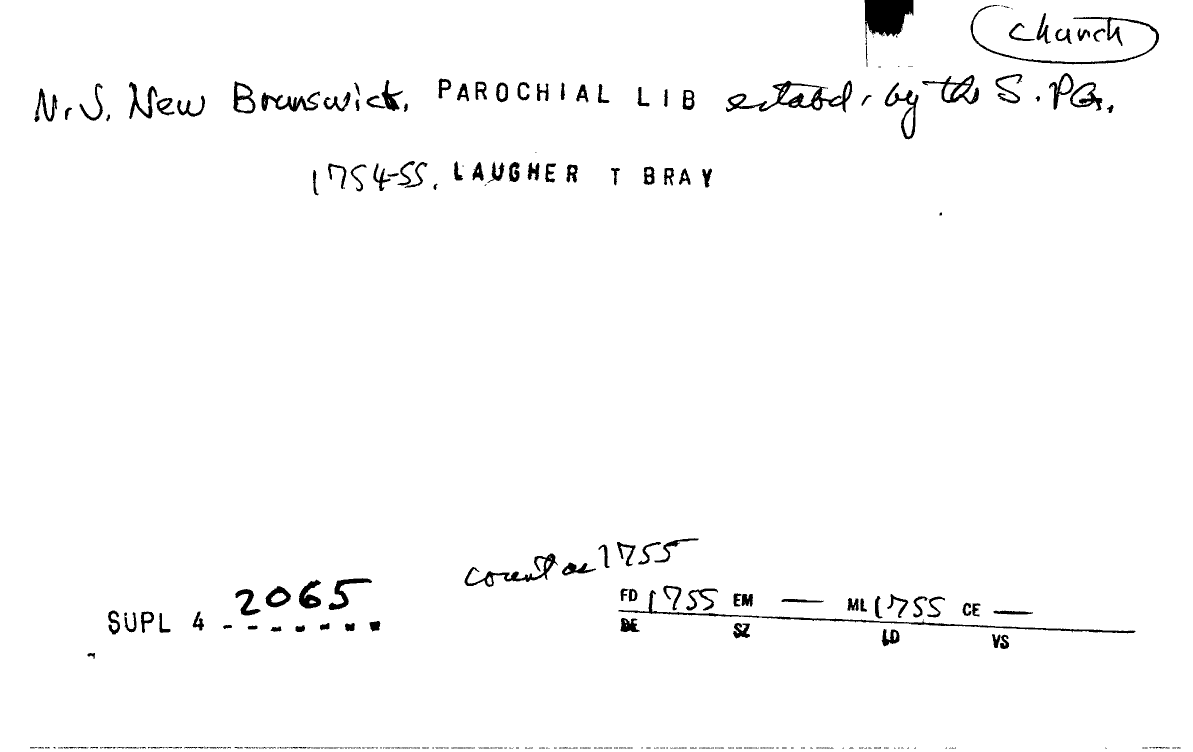 church
N.J. New Brunswick, PAROCHIAL LIB estabd. by the S.P.G.
1754-55. LAUGHER T BRAY
count as 1755
SUPL 4 2065
FD 1755 EM — ML 1755 CE —
DE SZ LD VS